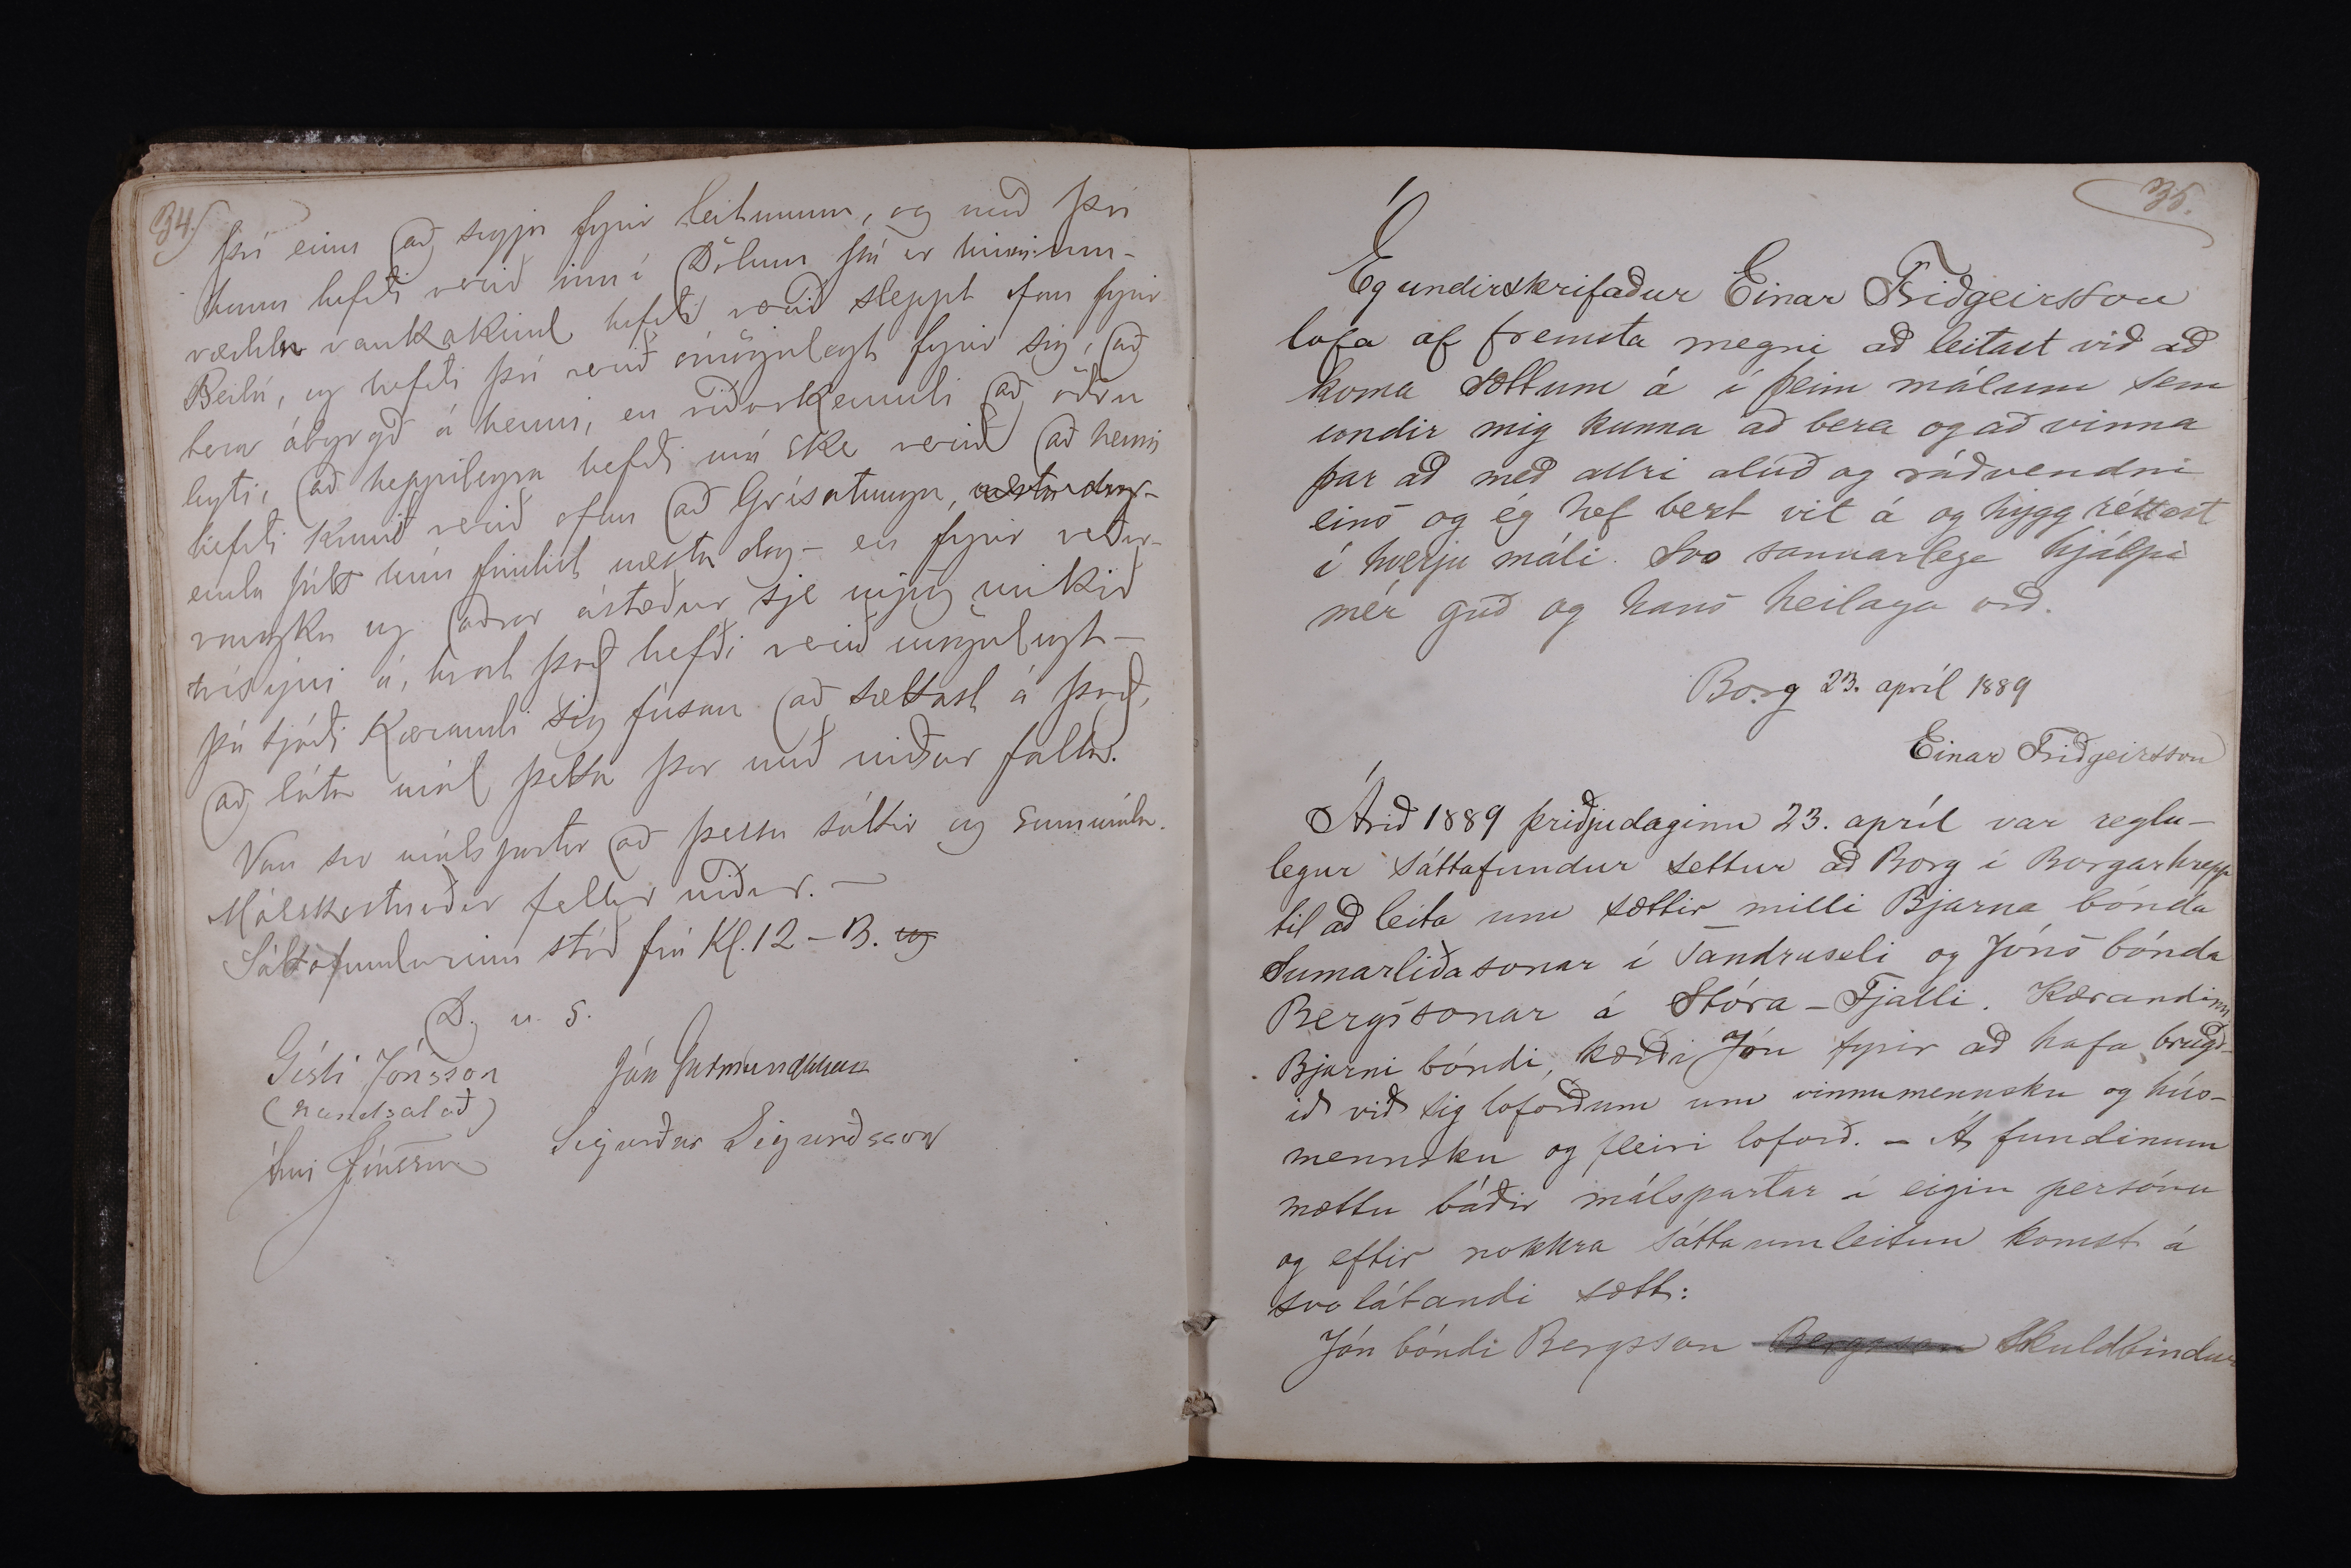 34.
því einn að segja fyrir leitunum, og með því
hann hefði verið inn í Dölum þá er
vankakind hefði verið sleppt ofan fyrir
Beilá, og hefði því verið ómögulegt fyrir sig, að
bera ábyrgð á henni, en viðurkenndi að öðru
leyti, að heppilegra hefði má ske verið að henni
hefði komið verið ofan að Grísatungu,
enda þótt hún findist næsta dag – en fyrir veður-
vonzku og aðrar ástæður sje mjög mikið
vísýni á, hvort það hefði verið mögulegt –
þá tjáði Kærandi sig fúsan að sættast á það,
að láta mál þetta þar með niður falla.
Van svo málspartar að þessu sáttir og sammála.
Málskostnaður fellur niður. –
Sáttafundurinn stóð frá Kl. 12 – 13. og
D. u. S.
Gísli Jónsson Jón Guðmundsson
(handsalað)
Árni Jónsson Sigurður Sigurðsson
35.
Ég undirskrifaður Einar Friðgeirsson
lofa af fremsta megni að leitast við að
koma sættum á í þeim málum sem
undir mig kunna að bera og að vinna
þar að með allri alúð og ráðvendni
eins og ég hef bezt vit á og hygg réttast
í hverju máli. Svo sannarlega hjálpi
mér guð og hans heilaga orð.
Borg 23. apríl 1889
Einar Friðgeirsson
Árið 1889 þriðjudaginn 23. apríl var reglu-
legur sáttafundur settur að Borg í Borgarhrepp
til að leita um sættir milli Bjarna bónda
Sumarliðasonar í Tandraseli og Jóns bónda
Bergssonar á Stóra-Fjalli. Kærandinn
Bjarni bóndi, kærði Jón fyrir að hafa brugð-
ið við sig loforðum um vinnumennsku og hús-
mennsku og fleiri loforð. – Á fundinum
mættu báðir málspartar í eigin persónu
og eftir nokkra sáttaumleitun komst á
svo látandi sætt:
Jón bóndi Bergsson Bergsson skuldbindur